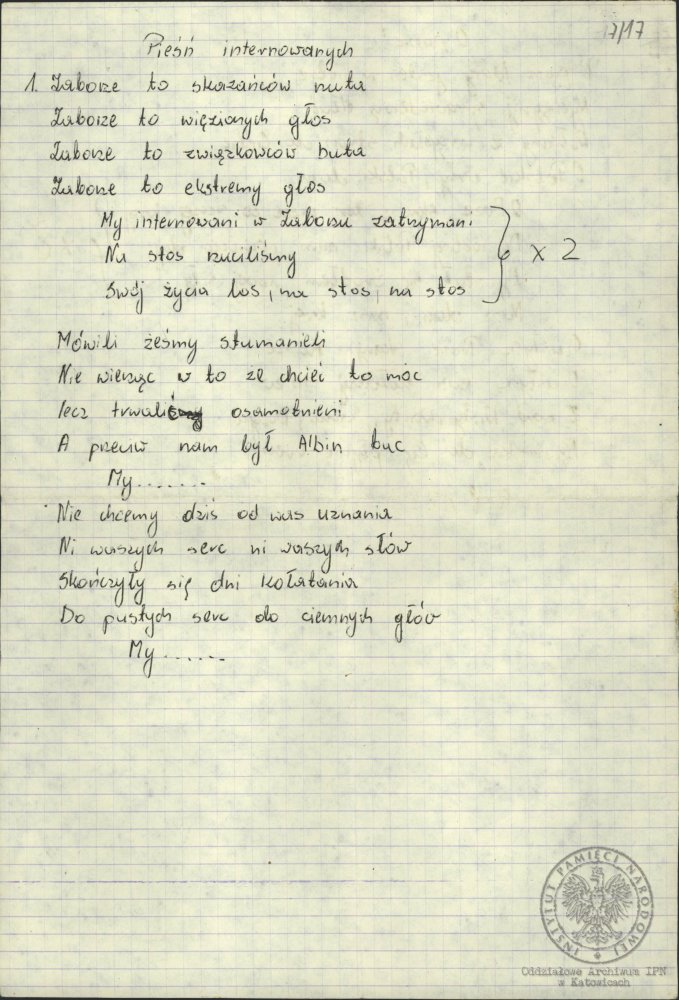 7/17
Pieśń internowanych
1. Zaborze to skazańców nuta
Zaborze to więzionych głos
Zaborze to związkowców buta
Zaborze to ekstremy głos
My internowani w Zaborzu zatrzymani
Na stos rzuciliśmy
Swój życia los, na stos, na stos
x 2
Mówili żeśmy stumanieli
Nie wierząc w to że chcieć to móc
lecz trwali osamotnieni
A przeciw nam był Albin buc
My.......
Nie chcemy dziś od was uznania
Ni waszych serc ni waszych słów
Skończyły się dni kołatania
Do pustych serc do ciemnych głów
My......
INSTYTUT PAMIĘCI NARODOWEJ
Oddziałowe Archiwum IPN
w Katowicach